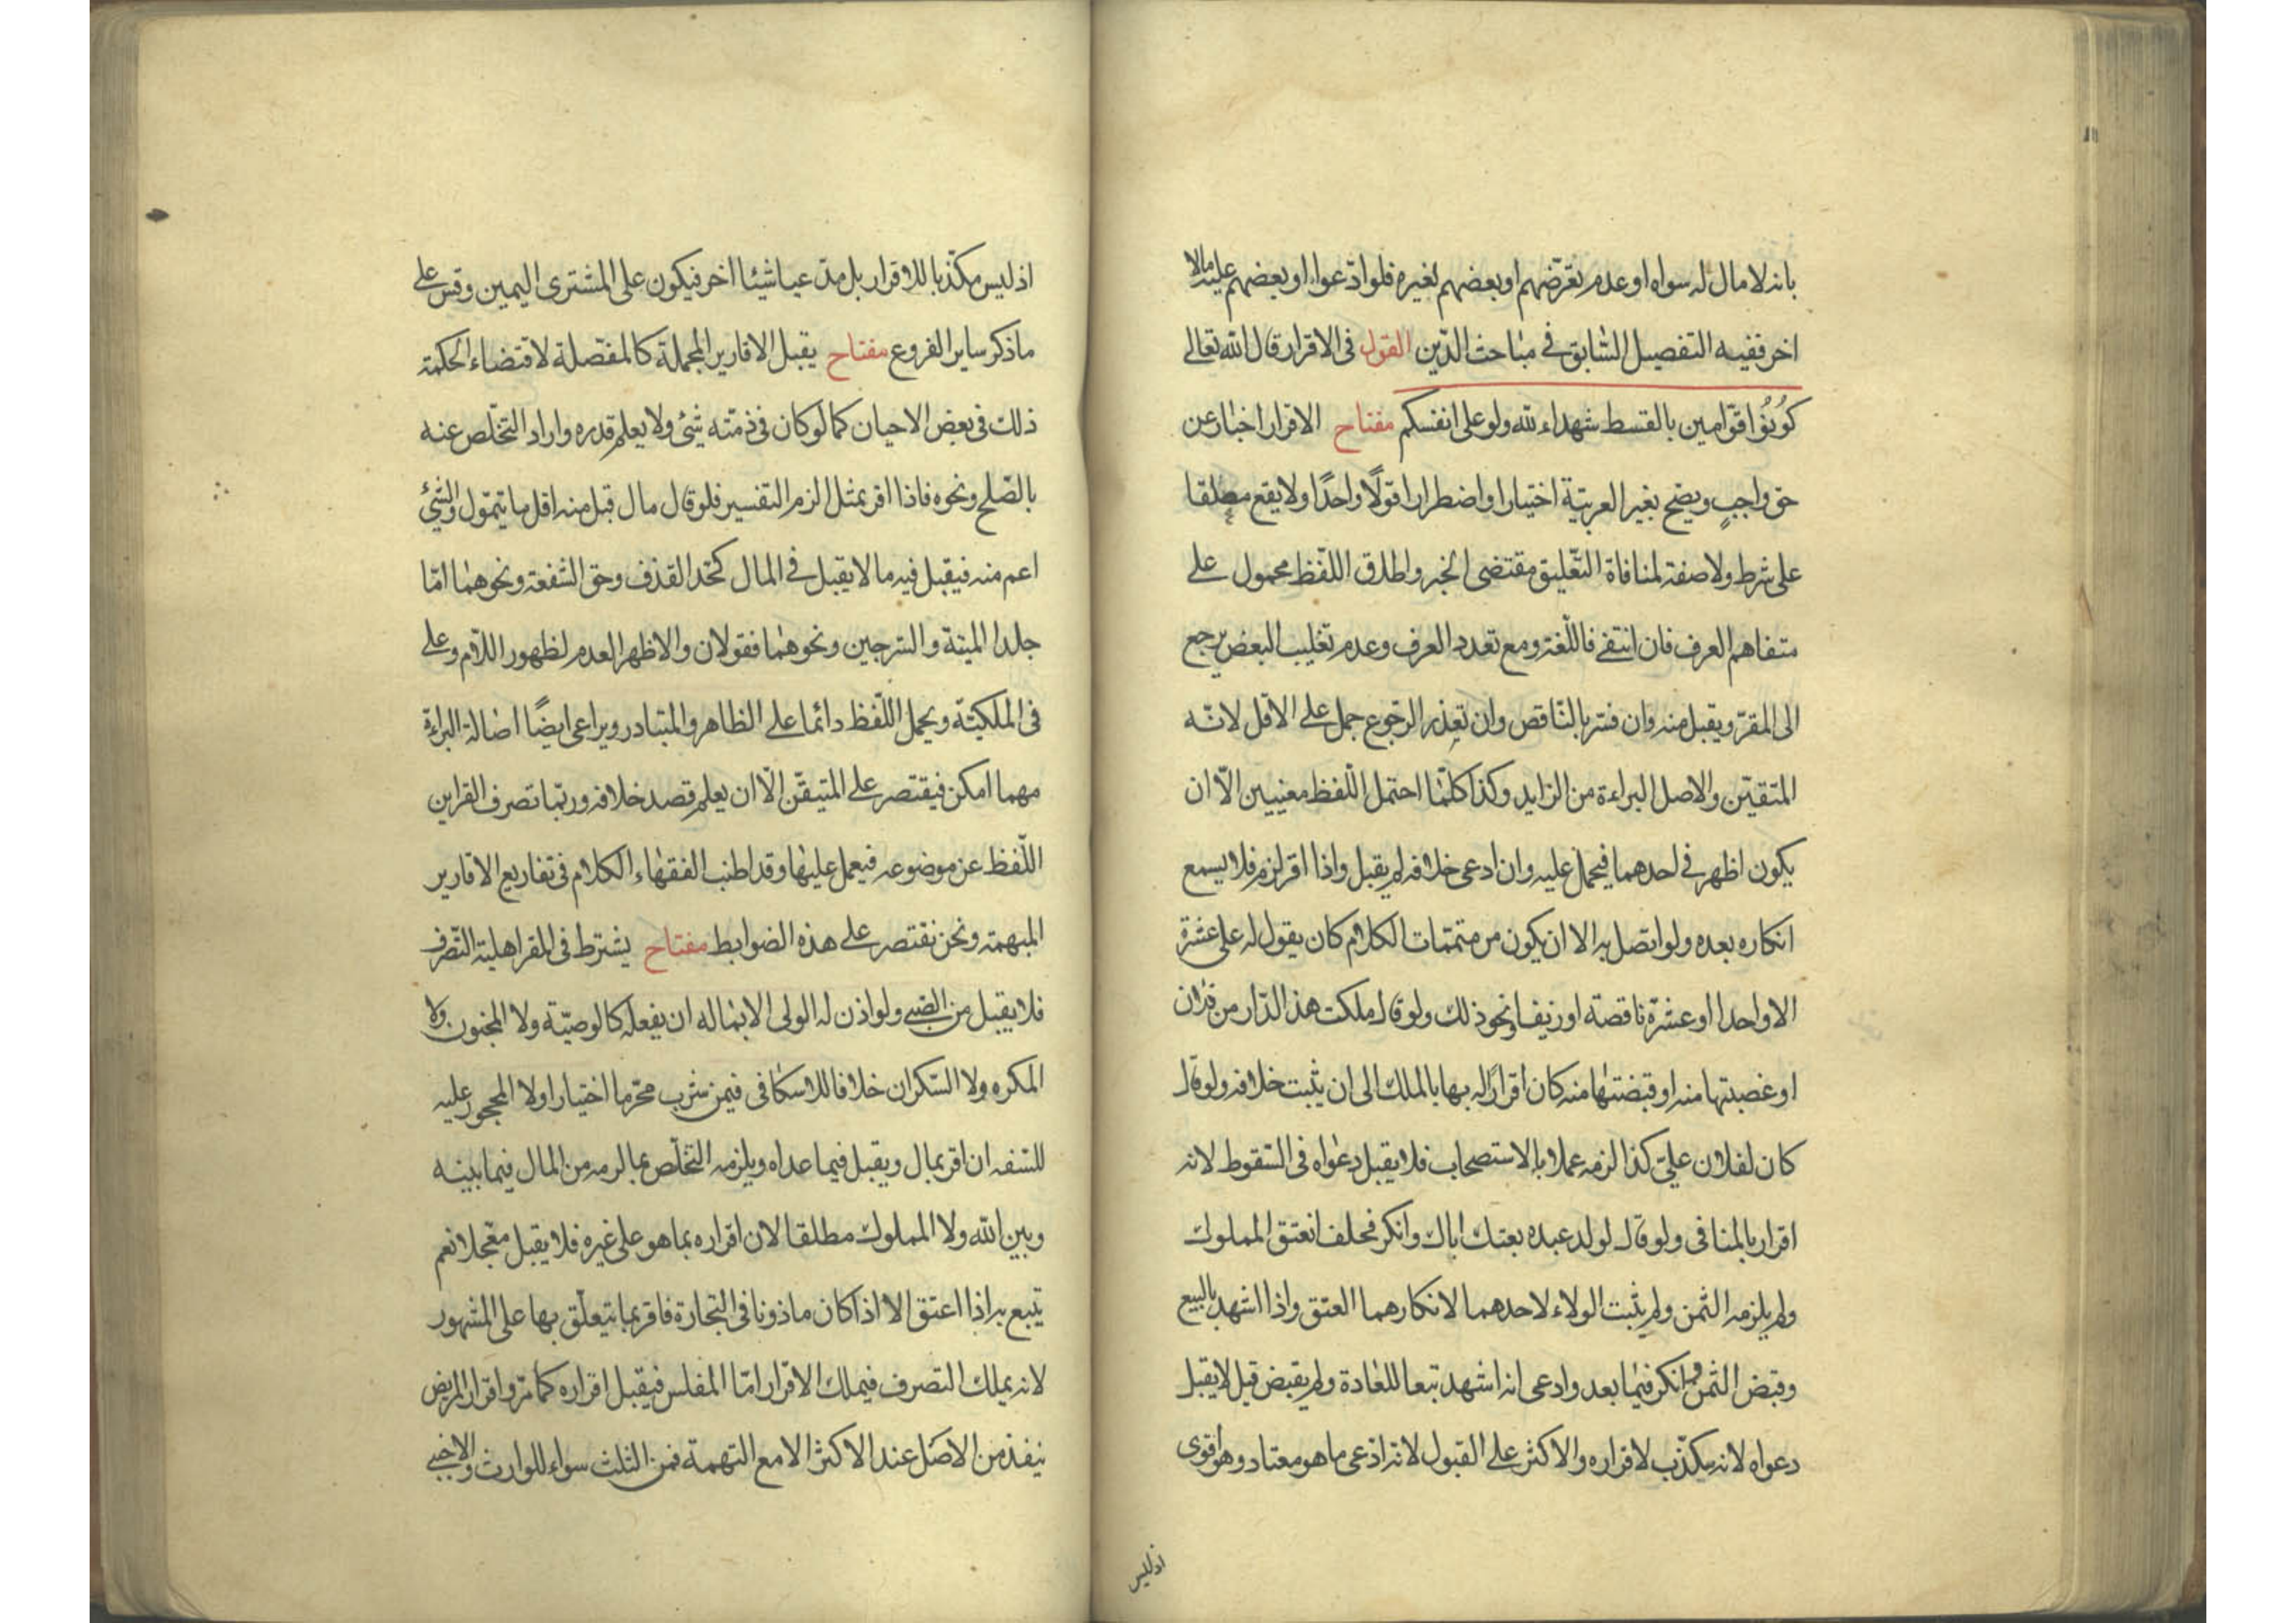 بانه لا مال له سواه او عدم تعرّضهم او بعضهم لغيره فلو ادّعوا او بعضهم عليه مالا
اخر ففيه التفصيل السّابق فى مباحث الدّين القول فى الاقرار قال الله تعالى
كُونُوا قوّامين بالقسط شهداء لله ولو على انفسكم مفتاح الاقرار اخبار عن
حق واجبٍ ويصح بغير العربيّة اختيارا واضطرارا قولًا واحدًا ولا يقع معلقا
على شرط ولا صفة لمنافاة التّعليق مقتضى الخبر واطلاق اللّفظ محمول على
متفاهم العرف فان انتفى فاللّغة ومع تعدد العرف وعدم تغليب البعض يرجع
الى المقرّ ويقبل منه وان فسّر بالنّاقص وان تعذر الرّجوع حمل على الاقل لانّه
المتقيّن والاصل البراءة من الزايد وكذا كلّما احتمل اللّفظ معنيين الّا ان
يكون اظهر فى احدهما فيحمل عليه وان ادعى خلافه لم يقبل واذا اقر لزم فلا يسمع
انكاره بعده ولو اتصل به الا ان يكون من متممّات الكلام كان يقول له على عشرة
الا واحدا او عشرة ناقصة او زيفا ونحو ذلك ولو قال ملكت هذ الدّار من فلان
او غصبتها منه او قبضتها منه كان اقرارًا له بها بالملك الى ان يثبت خلافه ولو قال
كان لفلان علىّ كذا لزمه عملا بالاستصحاب فلا يقبل دعواه فى السّقوط لانه
اقرار بالمنافى ولو قال لولد عبده بعتك اباك وانكر فحلف انعتق المملوك
ولم يلزمه الثمن ولم يثبت الولاء لاحدهما لانكارهما العتق واذا اشهد بالبيع
وقبض الثمن وانكر فيما بعد وادعى انه اشهد تبعا للعادة ولم يقبض قيل لا يقبل
دعواه لانه مكذّب لاقراره والاكثر على القبول لانه ادّعى ما هو معتاد وهو اقوى
اذ ليس
اذ ليس مكذّبا للاقرار بل مدّعيا شيئا اخر فيكون على المشترى اليمين وقس على
ما ذكر ساير الفروع مفتاح يقبل الاقارير المجملة كالمفصّلة لاقتضاء الحكمة
ذلك فى بعض الاحيان كما لو كان فى ذمّته شئ ولا يعلم قدره واراد التّخلّص عنه
بالصّلح ونحوه فاذا اقر بمثل الزم التفسير فلو قال مال قبل منه اقل ما يتموّل والشئ
اعم منه فيقبل فيه ما لا يقبل فى المال كحّد القذف وحق الشفعة ونحوهما امّا
جلد الميتة والسّرجين ونحوهما فقولان والاظهر العدم لظهور اللّام وعلى
فى الملكيّة ويحمل اللّفظ دائما على الظاهر والمتبادر ويراعى ايضًا اصالة البراءة
مهما امكن فيقتصر على المتيقّن الّا ان يعلم قصد خلافه وربّما تصرف القراين
اللّفظ عن موضوعه فيعمل عليها وقد اطنب الفقهاء الكلام فى تفاريع الاقارير
المبهمة ونحن نقتصر على هذه الضوابط مفتاح يشترط فى المقر اهلية التّصرف
فلا يقبل من الصّبى ولو اذن له الولى الا بما له ان يفعله كالوصيّة ولا المجنون ولا
المكره ولا السّكران خلافا للاسكافى فيمن شرب محرّما اختيارا ولا المحجور عليه
للسّفه ان اقر بمال ويقبل فيما عداه ويلزمه التّخلّص مما لزمه من المال فيما بينه
وبين الله ولا المملوك مطلقا لان اقراره بما هو على غيره فلا يقبل معّجلا نعم
يتبع به اذا اعتق الا اذا كان ماذونا فى التجارة فاقر بما يتعلّق بها على المشهور
لانه يملك التصرف فيملك الاقرار امّا المفلس فيقبل اقراره كما مرّ واقرار المريض
ينفذ من الاصل عند الاكثر الا مع التهمة فمن الثلث سواء للوارث والاجنبى